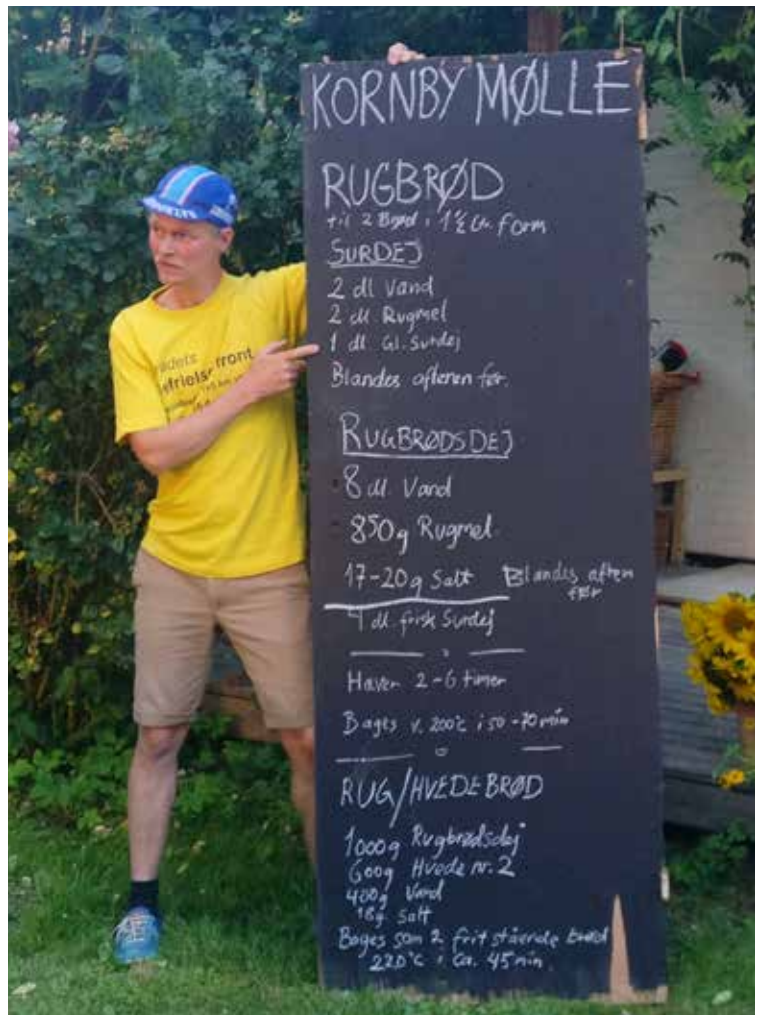 KORNBY MØLLE
RUGBRØD
til 2 Brød i 1½ Ltr. form
SURDEJ
2 dl Vand
2 dl. Rugmel
1 dl. Gl. Surdej
Blandes aftenen før.
RUGBRØDSDEJ
8 dl. Vand
850g Rugmel.
17-20g Salt Blandes aften
før
4 dl. frisk Surdej
Hæver 2-6 timer
Bages v. 200°c i 50-70 min
RUG/HVEDEBRØD
1000g Rugbrødsdej
600g Hvede nr. 2
400g Vand
18g Salt
Bages som 2 frit stående brød
220°C i Ca. 45 min.
front